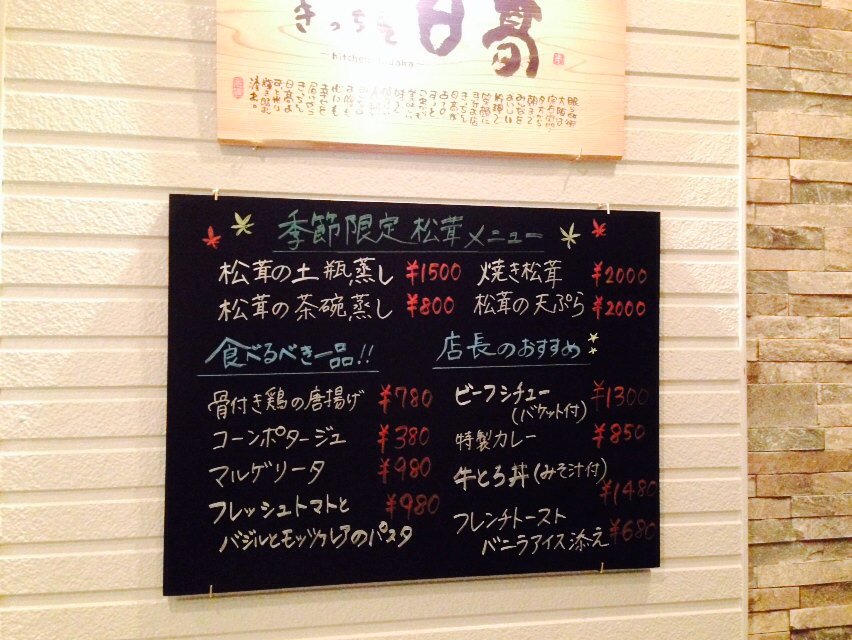 きっちん日高
季節限定 松茸メニュー
松茸の土瓶蒸し ¥1500 焼き松茸 ¥2000
松茸の茶碗蒸し ¥800 松茸の天ぷら ¥2000
食べるべき一品!!
骨付き鶏の唐揚げ ¥780
コーンポタージュ ¥380
マルゲリータ ¥980
フレッシュトマトと ¥980
バジルとモッツァレアのパスタ
店長のおすすめ
ビーフシチュー ¥1300
(バケット付)
特製カレー ¥850
牛とろ丼(みそ汁付)
¥1480
フレンチトースト
バニラアイス添え ¥680